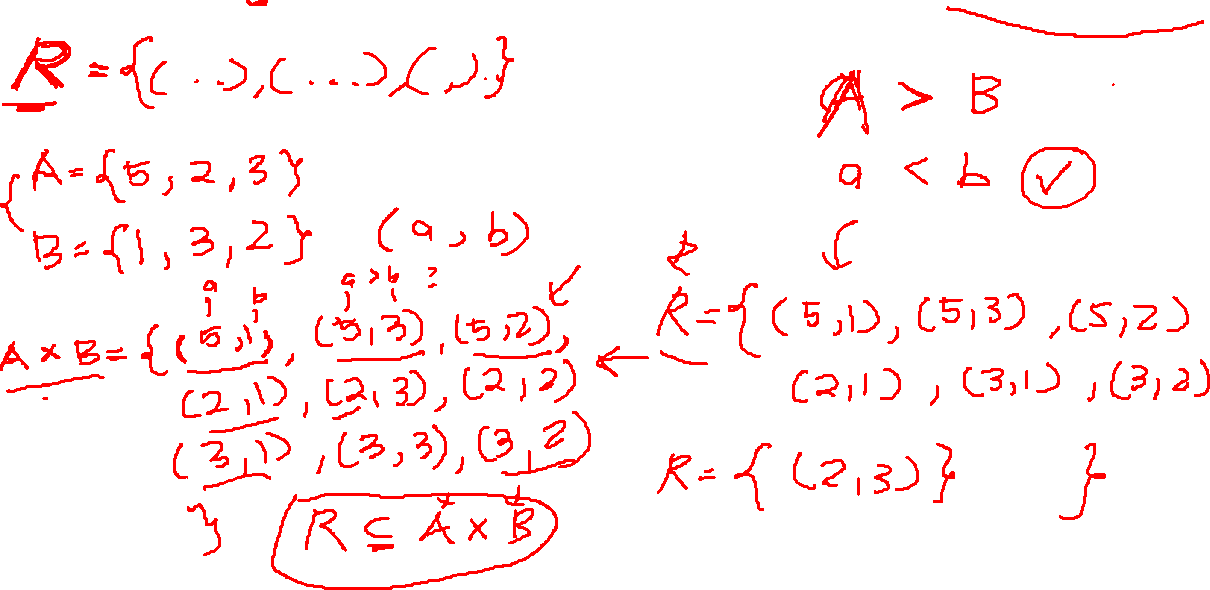 R = {( .. ), ( ... ), ( , ) . }
A > B
A = {5, 2, 3}
a < b ✓
B = {1, 3, 2} (a, b)
a b a > b ?
A × B = {(5,1), (5,3), (5,2),
(2,1), (2,3), (2,2)
(3,1), (3,3), (3,2)
}
R ⊆ A × B
R = { (5,1), (5,3), (5,2)
(2,1), (3,1), (3,2)
}
R = { (2,3) }